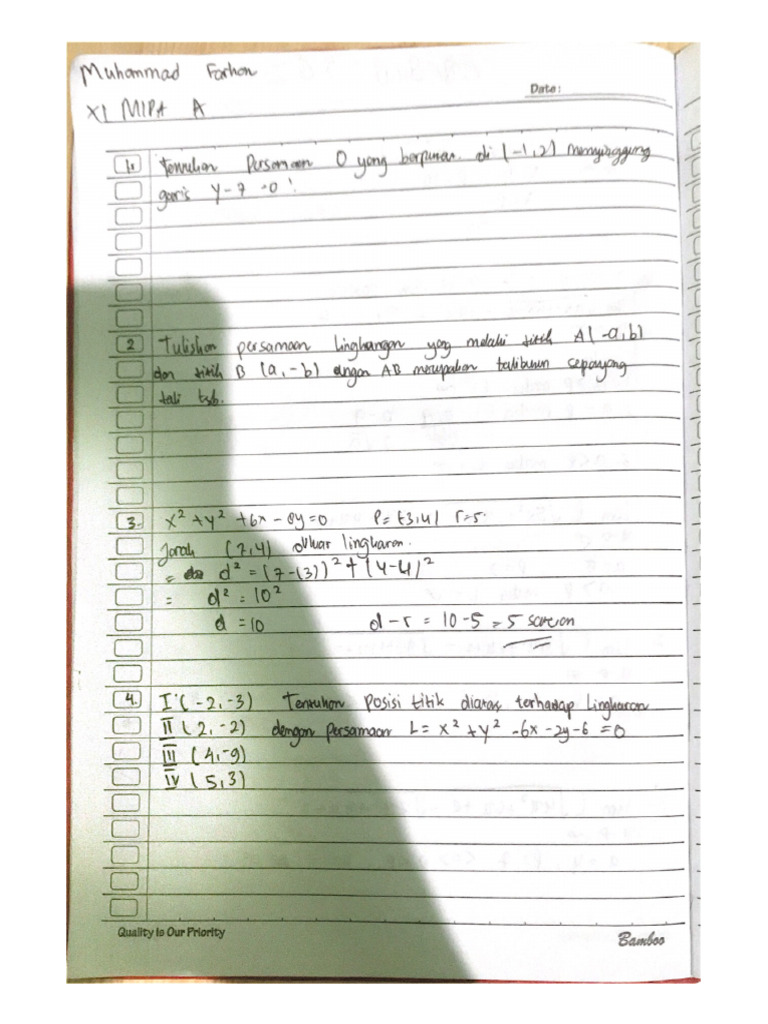 Muhammad Farhan
Date:
XI MIPA A
1. Tentukan Persamaan O yang berpusat di (-1,2) menyinggung
garis y-7=0!
2 Tuliskan persamaan lingkaran yang melalui titik A(-a,b)
dan titik B (a,-b) dengan AB merupakan talibusur sepanjang
tali tsb.
3. x² + y² + 6x - 8y = 0 P = (-3,4) r=5
Jarak (7,4) diluar lingkaran.
= d² = (7-(3))² + (4-4)²
= d² = 10²
d = 10 d - r = 10 - 5 = 5 satuan
4. I (-2,-3) Tentukan posisi titik diatas terhadap Lingkaran
II (2,-2) dengan persamaan L = x² + y² - 6x - 2y - 6 = 0
III (4,-9)
IV (5,3)
Quality is Our Priority
Bamboo